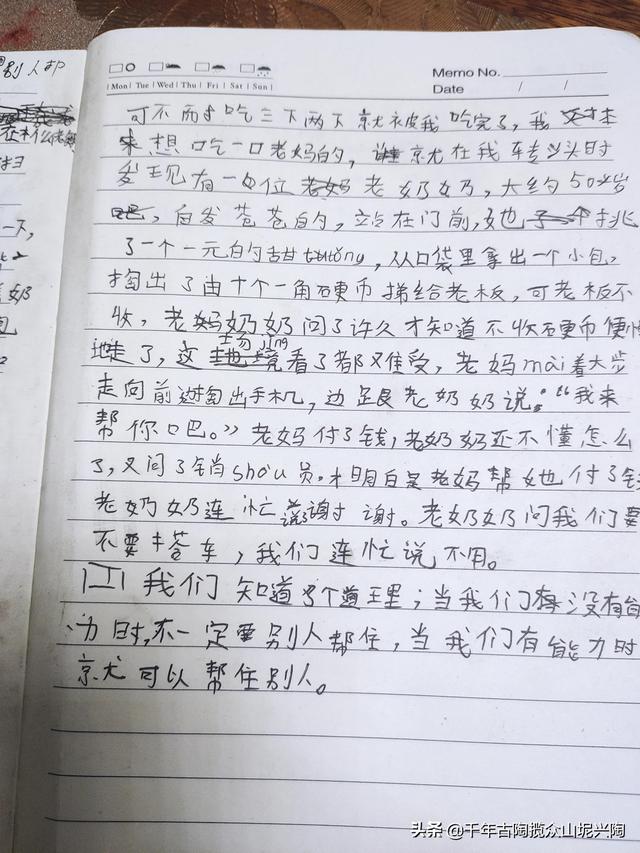 Memo No.
Mon Tue Wed Thu Fri Sat Sun
Date / /
别人帮
可不耐吃三下两下就被我吃完了,我本
来想吃一口老妈的,就在我转头时
发现有一位老奶奶,大约50岁
白发苍苍的,站在门前,她挑
了一个一元的甜tǒng,从口袋里拿出一个小包,
掏出了由十个一角硬币递给老板,可老板不
收,老奶奶问了许久才知道不收硬币便
走了,这场jǐng看了都难受,老妈mài着大步
走向前边掏出手机,边跟老奶奶说:“我来
帮你吧。”老妈付了钱,老奶奶还不懂怎么
了,又问了销shòu员.才明白是老妈帮她付了钱
老奶奶连忙说谢谢。老奶奶问我们要
不要搭车,我们连忙说不用。
我们知道了个道理;当我们没有能
力时,不一定要别人帮住,当我们有能力时
就可以帮住别人。
头条 @千年古陶揽众山坭兴陶